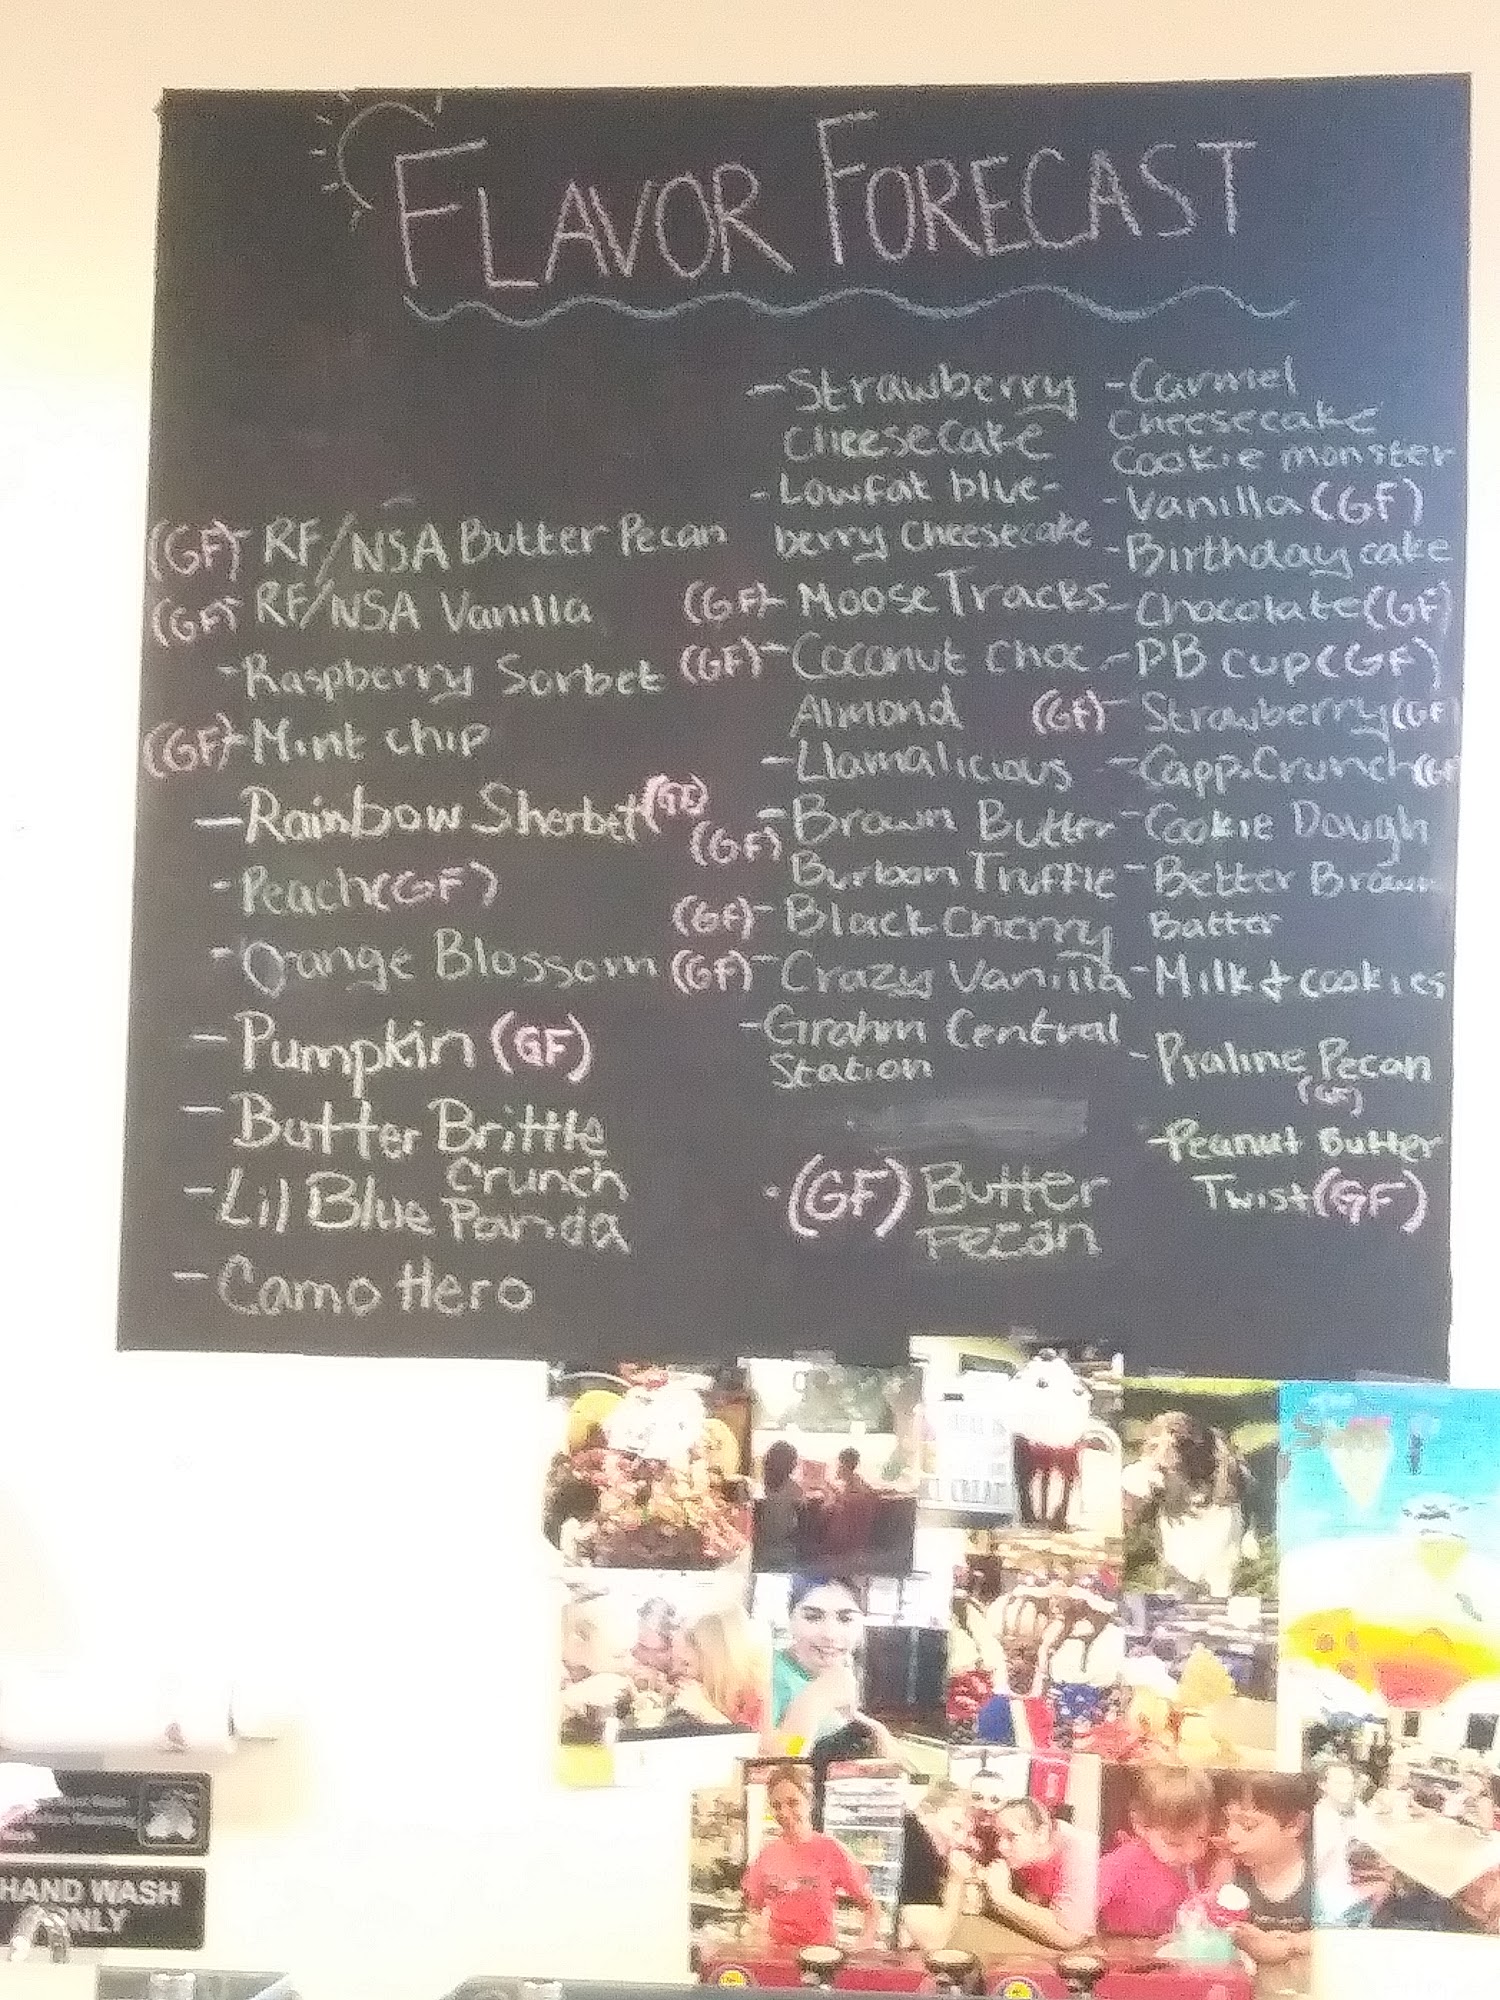 FLAVOR FORECAST
(GF)- RF/NSA Butter Pecan
(GF)- RF/NSA Vanilla
-Raspberry Sorbet
(GF)-Mint chip
-Rainbow Sherbet (GF)
-Peach (GF)
-Orange Blossom
-Pumpkin (GF)
-Butter Brittle
Crunch
-Lil Blue Panda
-Camo Hero
-Strawberry
Cheesecake
-Lowfat blue-
berry Cheesecake
(GF)- Moose Tracks
(GF)-Coconut choc
Almond
-Llamalicious
-Brown Butter
(GF) Burbon Truffle
(GF)-Black Cherry
(GF)-Crazy Vanilla
-Grahm Central
Station
·(GF) Butter
Pecan
-Carmel
Cheesecake
Cookie monster
-Vanilla (GF)
-Birthday cake
-Chocolate (GF)
-PB cup (GF)
(GF)- Strawberry (GF)
-Capp.Crunch (GF)
-Cookie Dough
-Better Brown
Batter
-Milk & cookies
-Praline Pecan
(GF)
-Peanut Butter
Twist (GF)
HAND WASH
ONLY